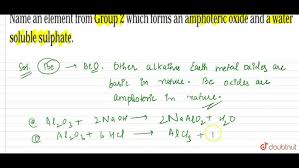 Name an element from Group 2 which forms an amphoteric oxide and a water
soluble sulphate.
Sol. Be → BeO. Other alkaline Earth metal oxides are
basic in nature. Be oxides are
amphoteric in nature.
@ Al2O3 + 2NaOH → 2NaAlO2 + H2O
Al2O3 + 6HCl → AlCl3 +
doubtnut